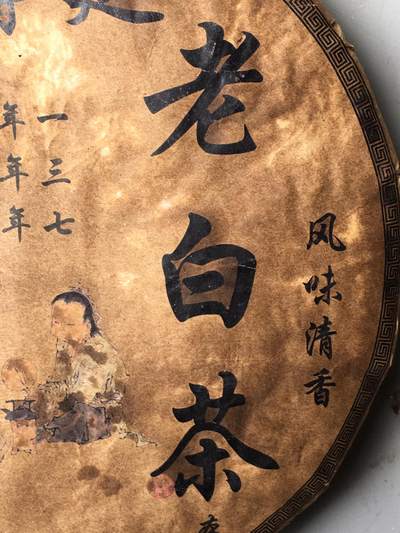 风味清香
老白茶
一年
三年
七年